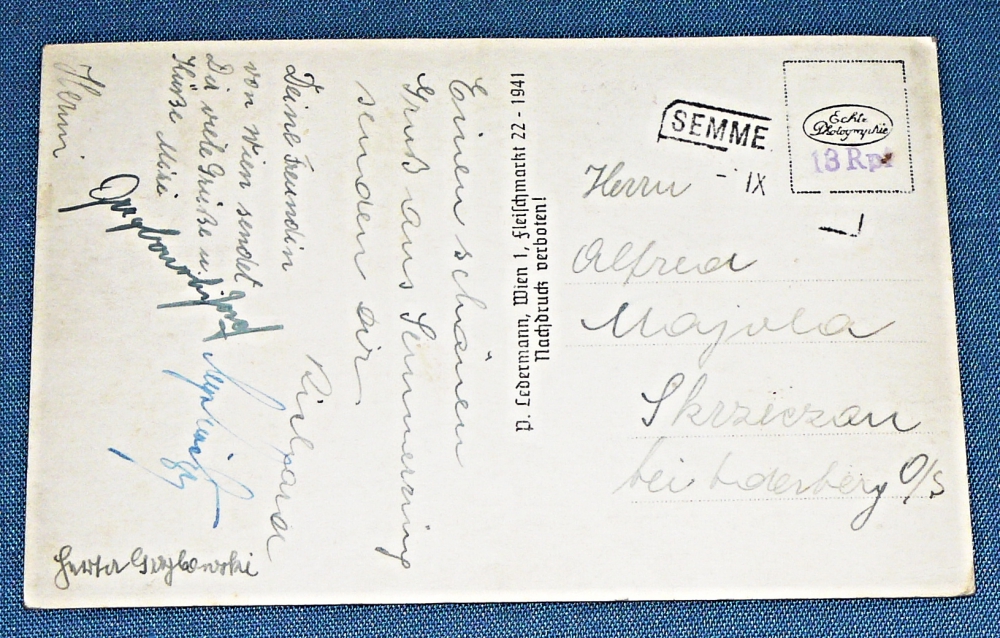 Einen schönen
Gruß aus Semmering
senden dir
Deine Freundin
von Wien sendet
Dir viele Grüße u.
Küße Mizi
Herta Grzybowski
P. Ledermann, Wien 1, Fleischmarkt 22 - 1941
Nachdruck verboten!
SEMME
- IX
Echte
Photographie
13 Rpf
Herrn
Alfred
Majola
Skrzeczon
bei Oderberg O/S